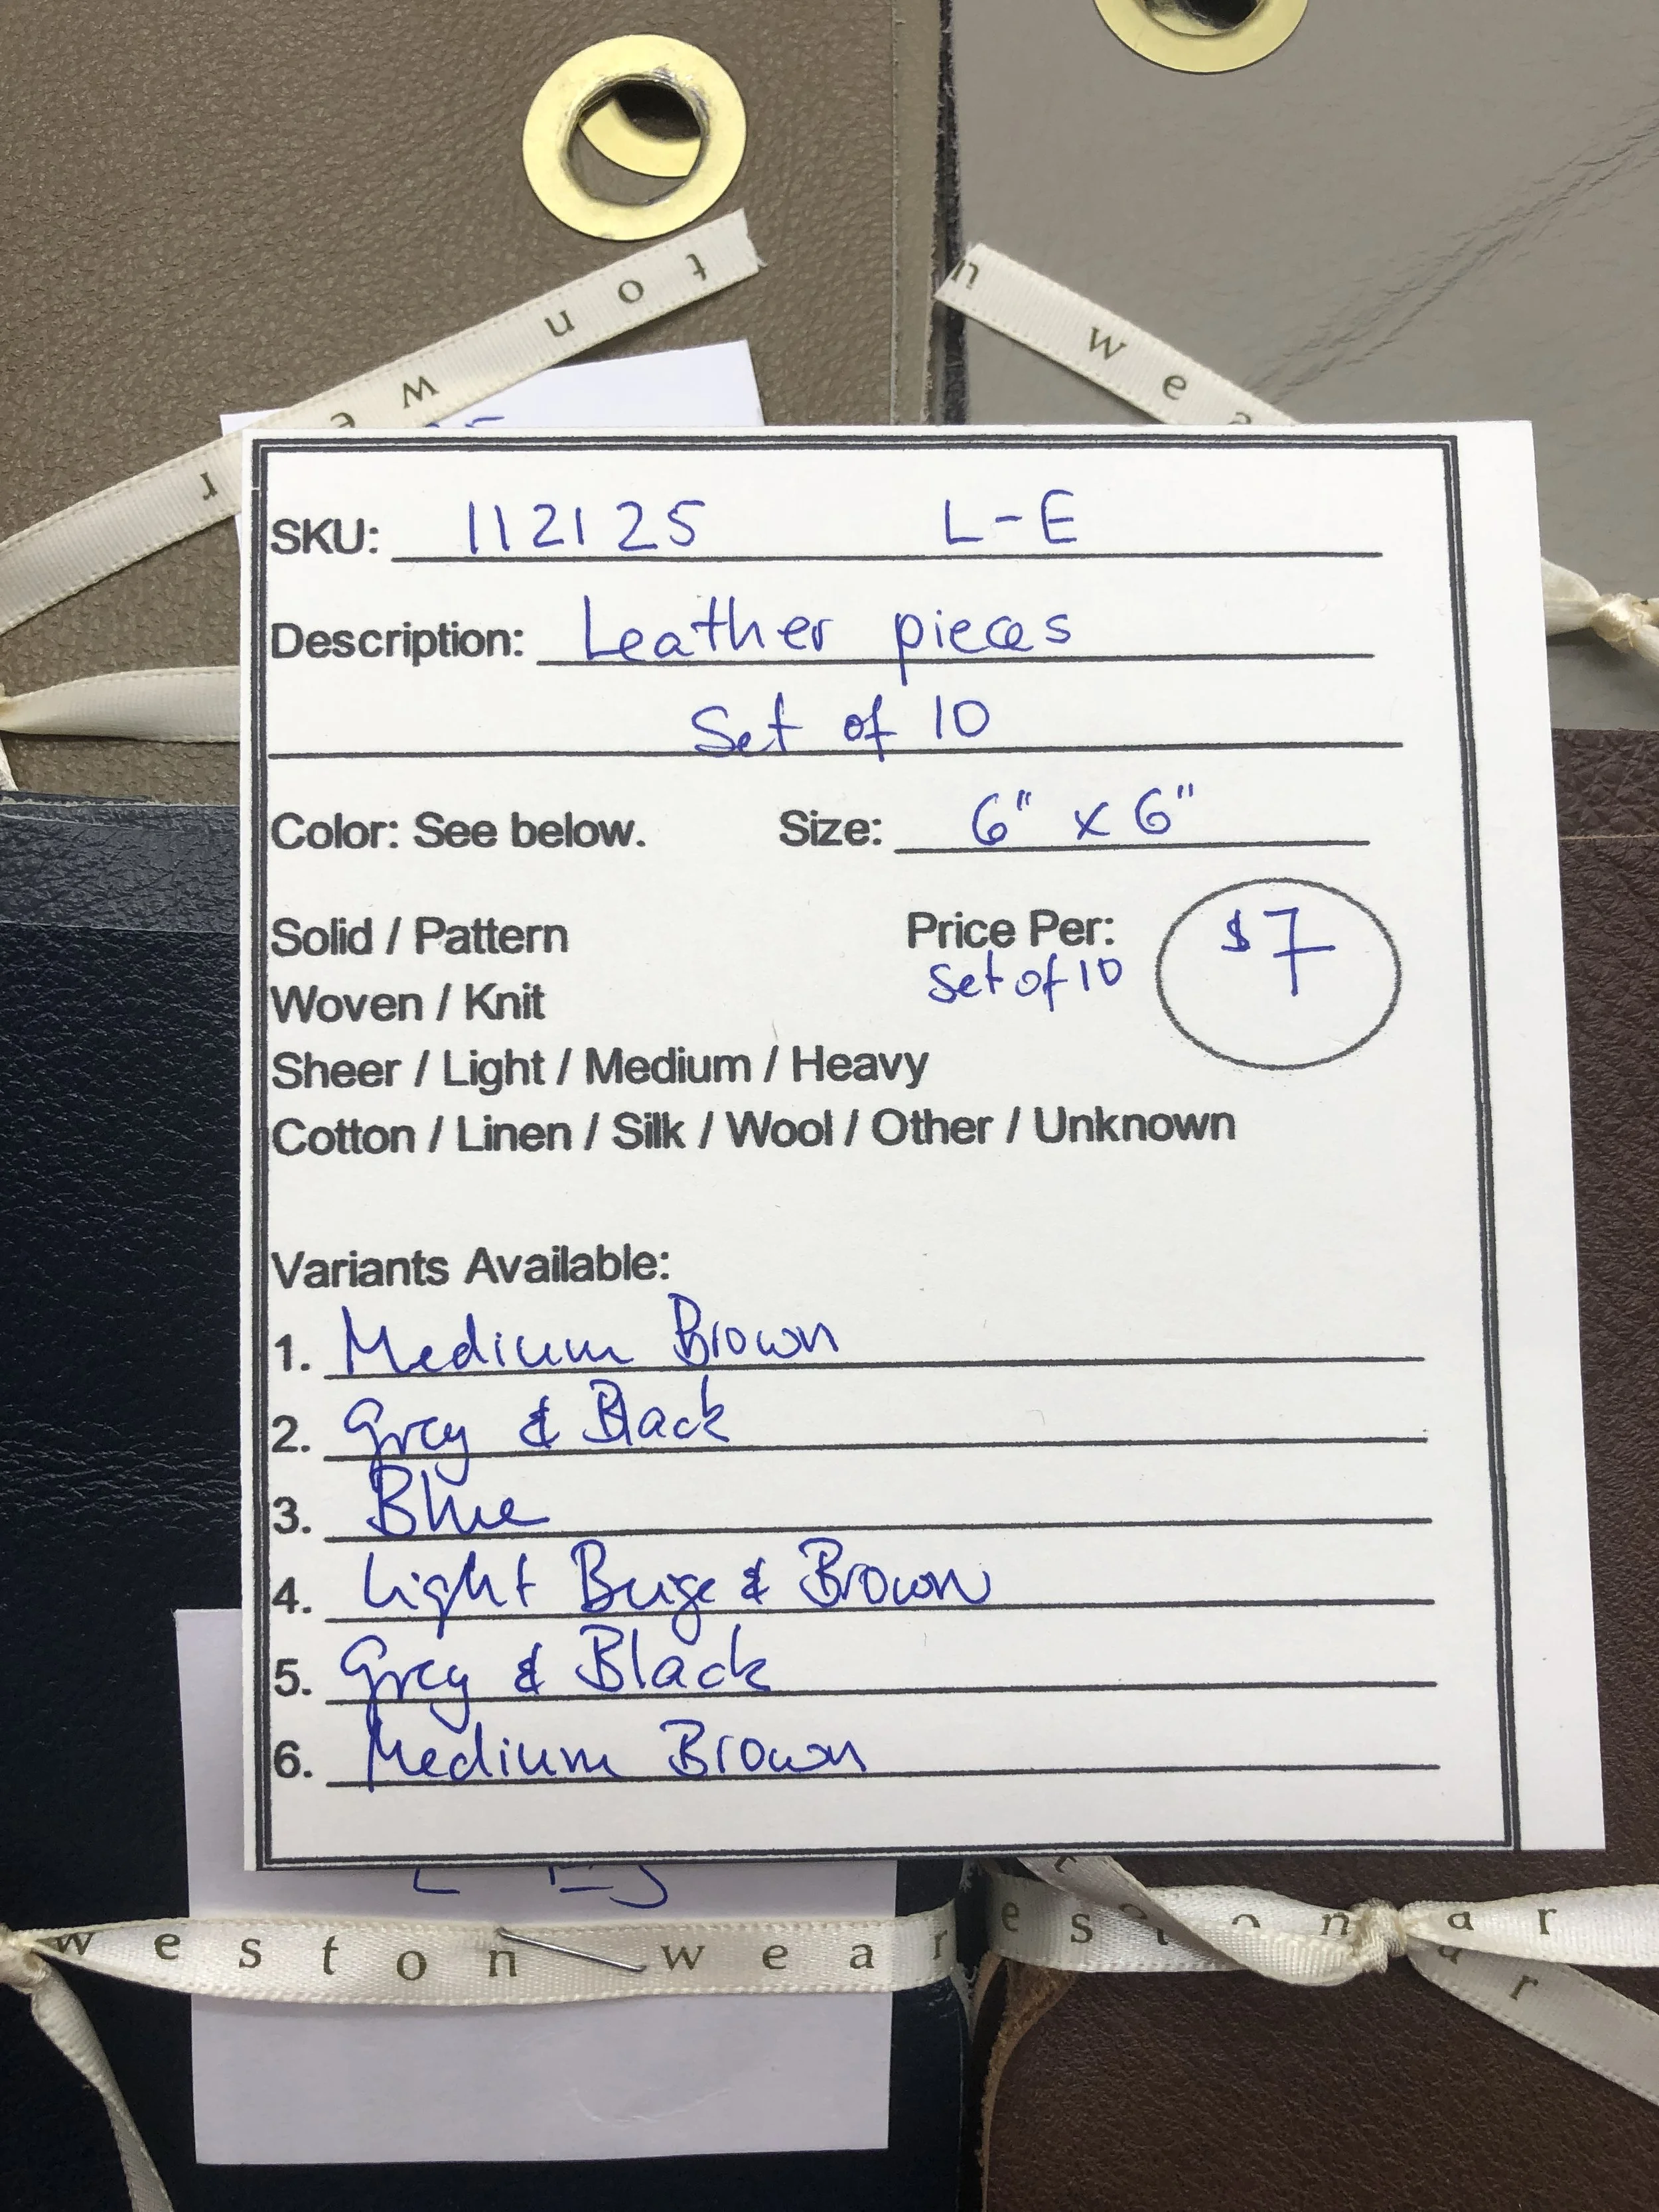 t o n w e r
n w e a
SKU: 112125 L-E
Description: Leather pieces
Set of 10
Color: See below. Size: 6" x 6"
Solid / Pattern Price Per: $7
Set of 10
Woven / Knit
Sheer / Light / Medium / Heavy
Cotton / Linen / Silk / Wool / Other / Unknown
Variants Available:
1. Medium Brown
2. Grey & Black
3. Blue
4. Light Beige & Brown
5. Grey & Black
6. Medium Brown
weston wear